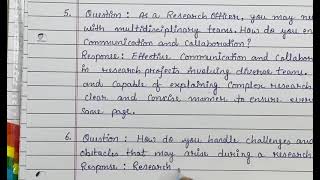 5. Question : As a Research Officer, you may ne
2 with multidisciplinary teams. How do you en
Communication and Collaboration?
Response: Effective Communication and Collabor
in research projects involving diverse teams.
and Capable of explaining Complex resear
clear and Concise manner to ensure every
same page.
6. Question : How do you handle challenges an
obstacles that may arise during a research
Response : Research